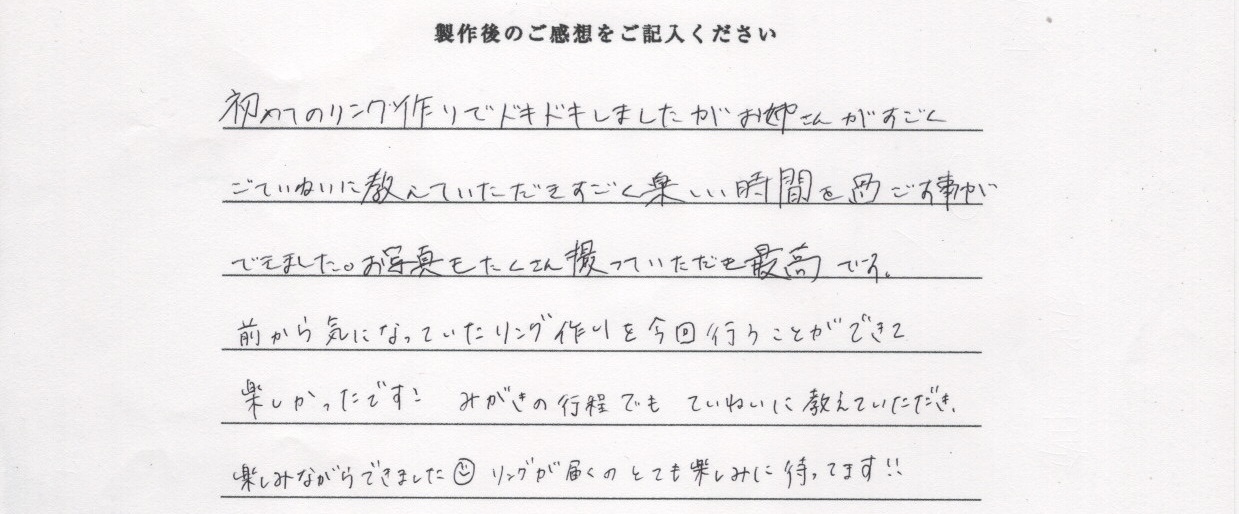 製作後のご感想をご記入ください
初めてのリング作りでドキドキしましたがお姉さんがすごく
ごていねいに教えていただきすごく楽しい時間を過ごす事が
できました。お写真もたくさん撮っていただき最高です。
前から気になっていたリング作りを今回行うことができて
楽しかったです! みがきの行程でも ていねいに教えていただき、
楽しみながらできました☺ リングが届くのとても楽しみに待ってます!!